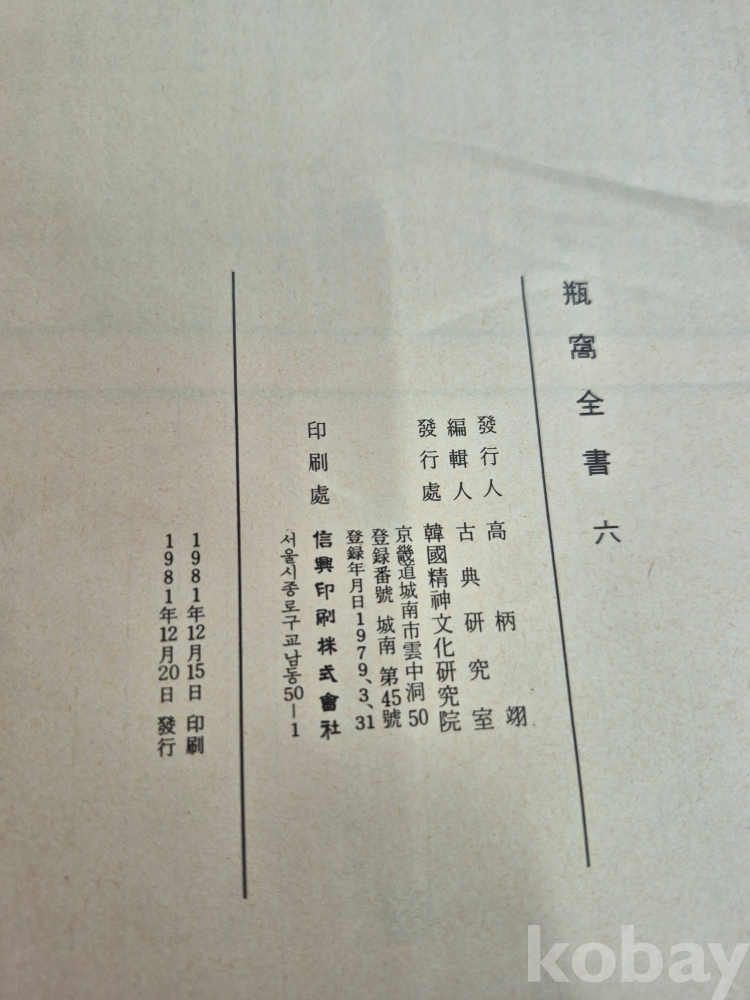 瓶窩全書 六
發行人 高柄翊
編輯人 古典研究室
發行處 韓國精神文化研究院
京畿道城南市雲中洞50
登録番號 城南 第45號
登録年月日 1979、3、31
印刷處 信興印刷株式會社
서울시종로구교남동50−1
1981年12月15日 印刷
1981年12月20日 發行
kobay